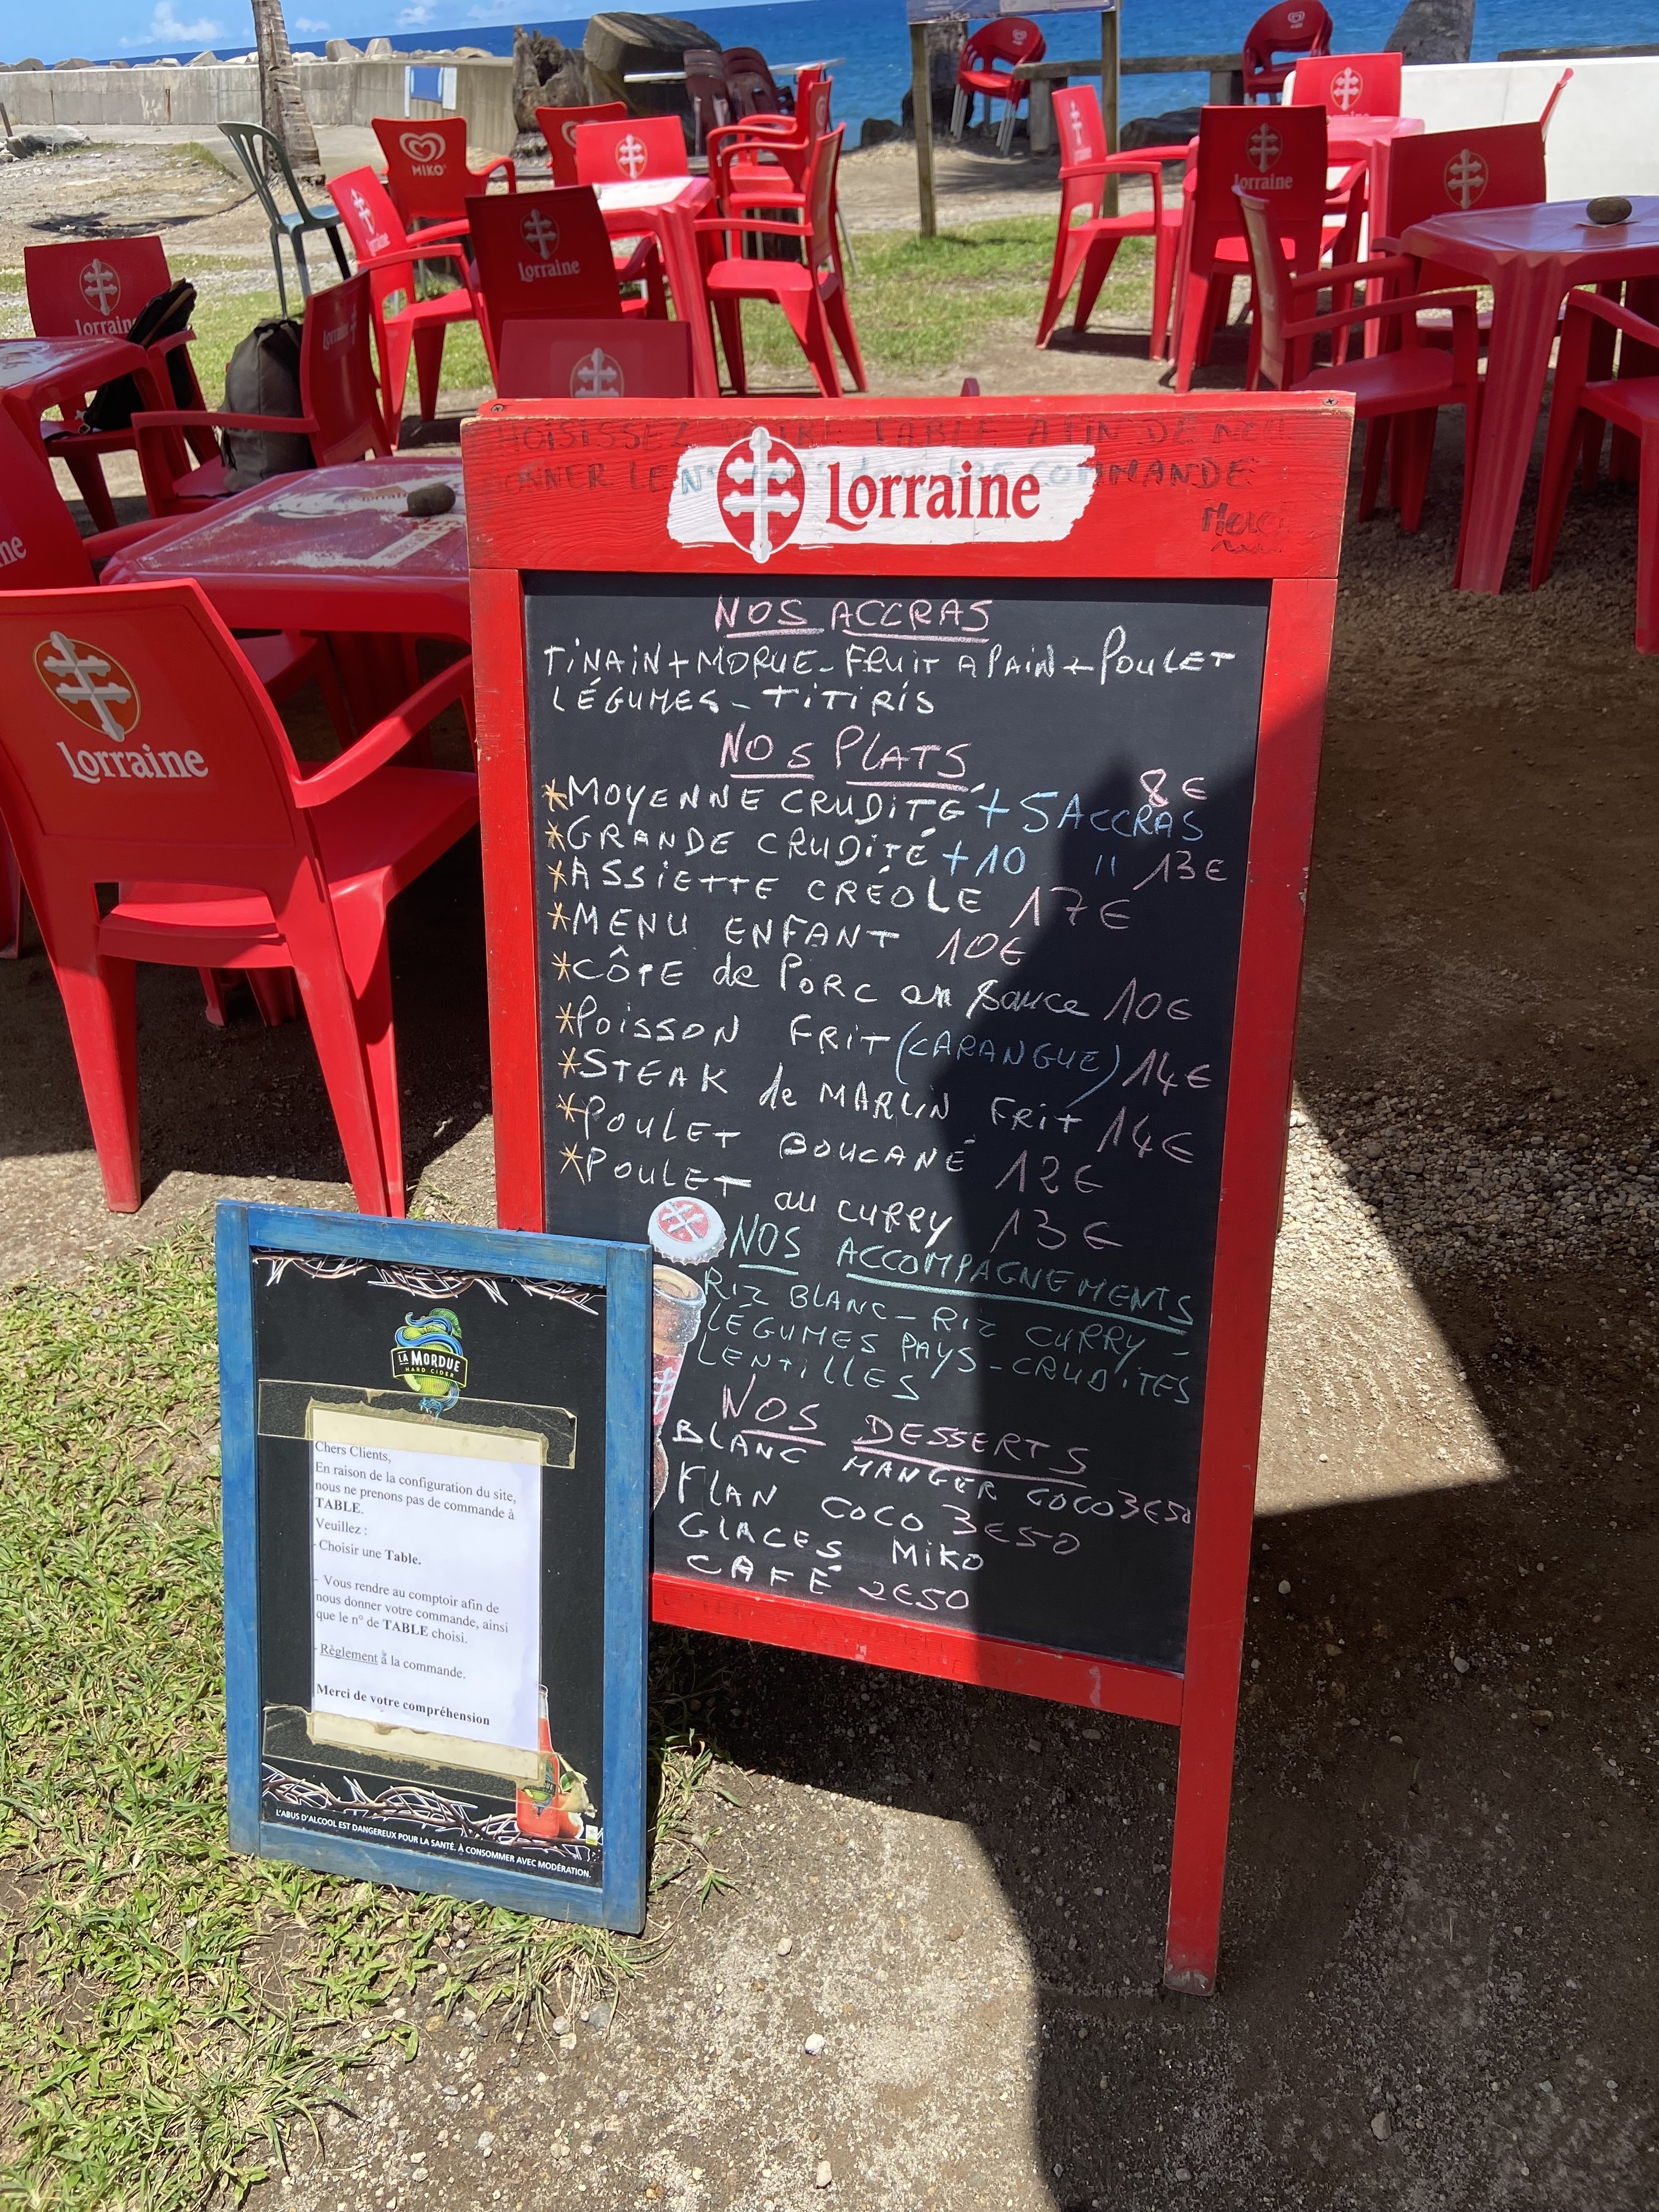 MIKO
Lorraine
Lorraine
Lorraine
Lorraine
Lorraine
CHOISISSEZ VOTRE TABLE AFIN DE NOUS
DONNER LE N° COMMANDE
Merci
Lorraine
NOS ACCRAS
TINAIN + MORUE - FRUIT A PAIN + POULET
LÉGUMES - TITIRIS
NOS PLATS
8€
*MOYENNE CRUDITÉ + 5 ACCRAS
*GRANDE CRUDITÉ + 10 " 13€
*ASSIETTE CRÉOLE 17€
*MENU ENFANT 10€
*CÔTE de PORC en sauce 10€
*POISSON FRIT (CARANGUE) 14€
*STEAK de MARLIN FRIT 14€
*POULET BOUCANÉ 12€
*POULET au CURRY 13€
NOS ACCOMPAGNEMENTS
RIZ BLANC - RIZ CURRY -
LEGUMES PAYS - CRUDITES
LENTILLES
NOS DESSERTS
BLANC MANGER COCO 3€50
FLAN COCO 3€50
GLACES MIKO
CAFÉ 2€50
LA MORDUE
HARD CIDER
Chers Clients,
En raison de la configuration du site,
nous ne prenons pas de commande à
TABLE.
Veuillez :
- Choisir une Table.
- Vous rendre au comptoir afin de
nous donner votre commande, ainsi
que le n° de TABLE choisi.
- Règlement à la commande.
Merci de votre compréhension
L'ABUS D'ALCOOL EST DANGEREUX POUR LA SANTÉ. À CONSOMMER AVEC MODÉRATION.